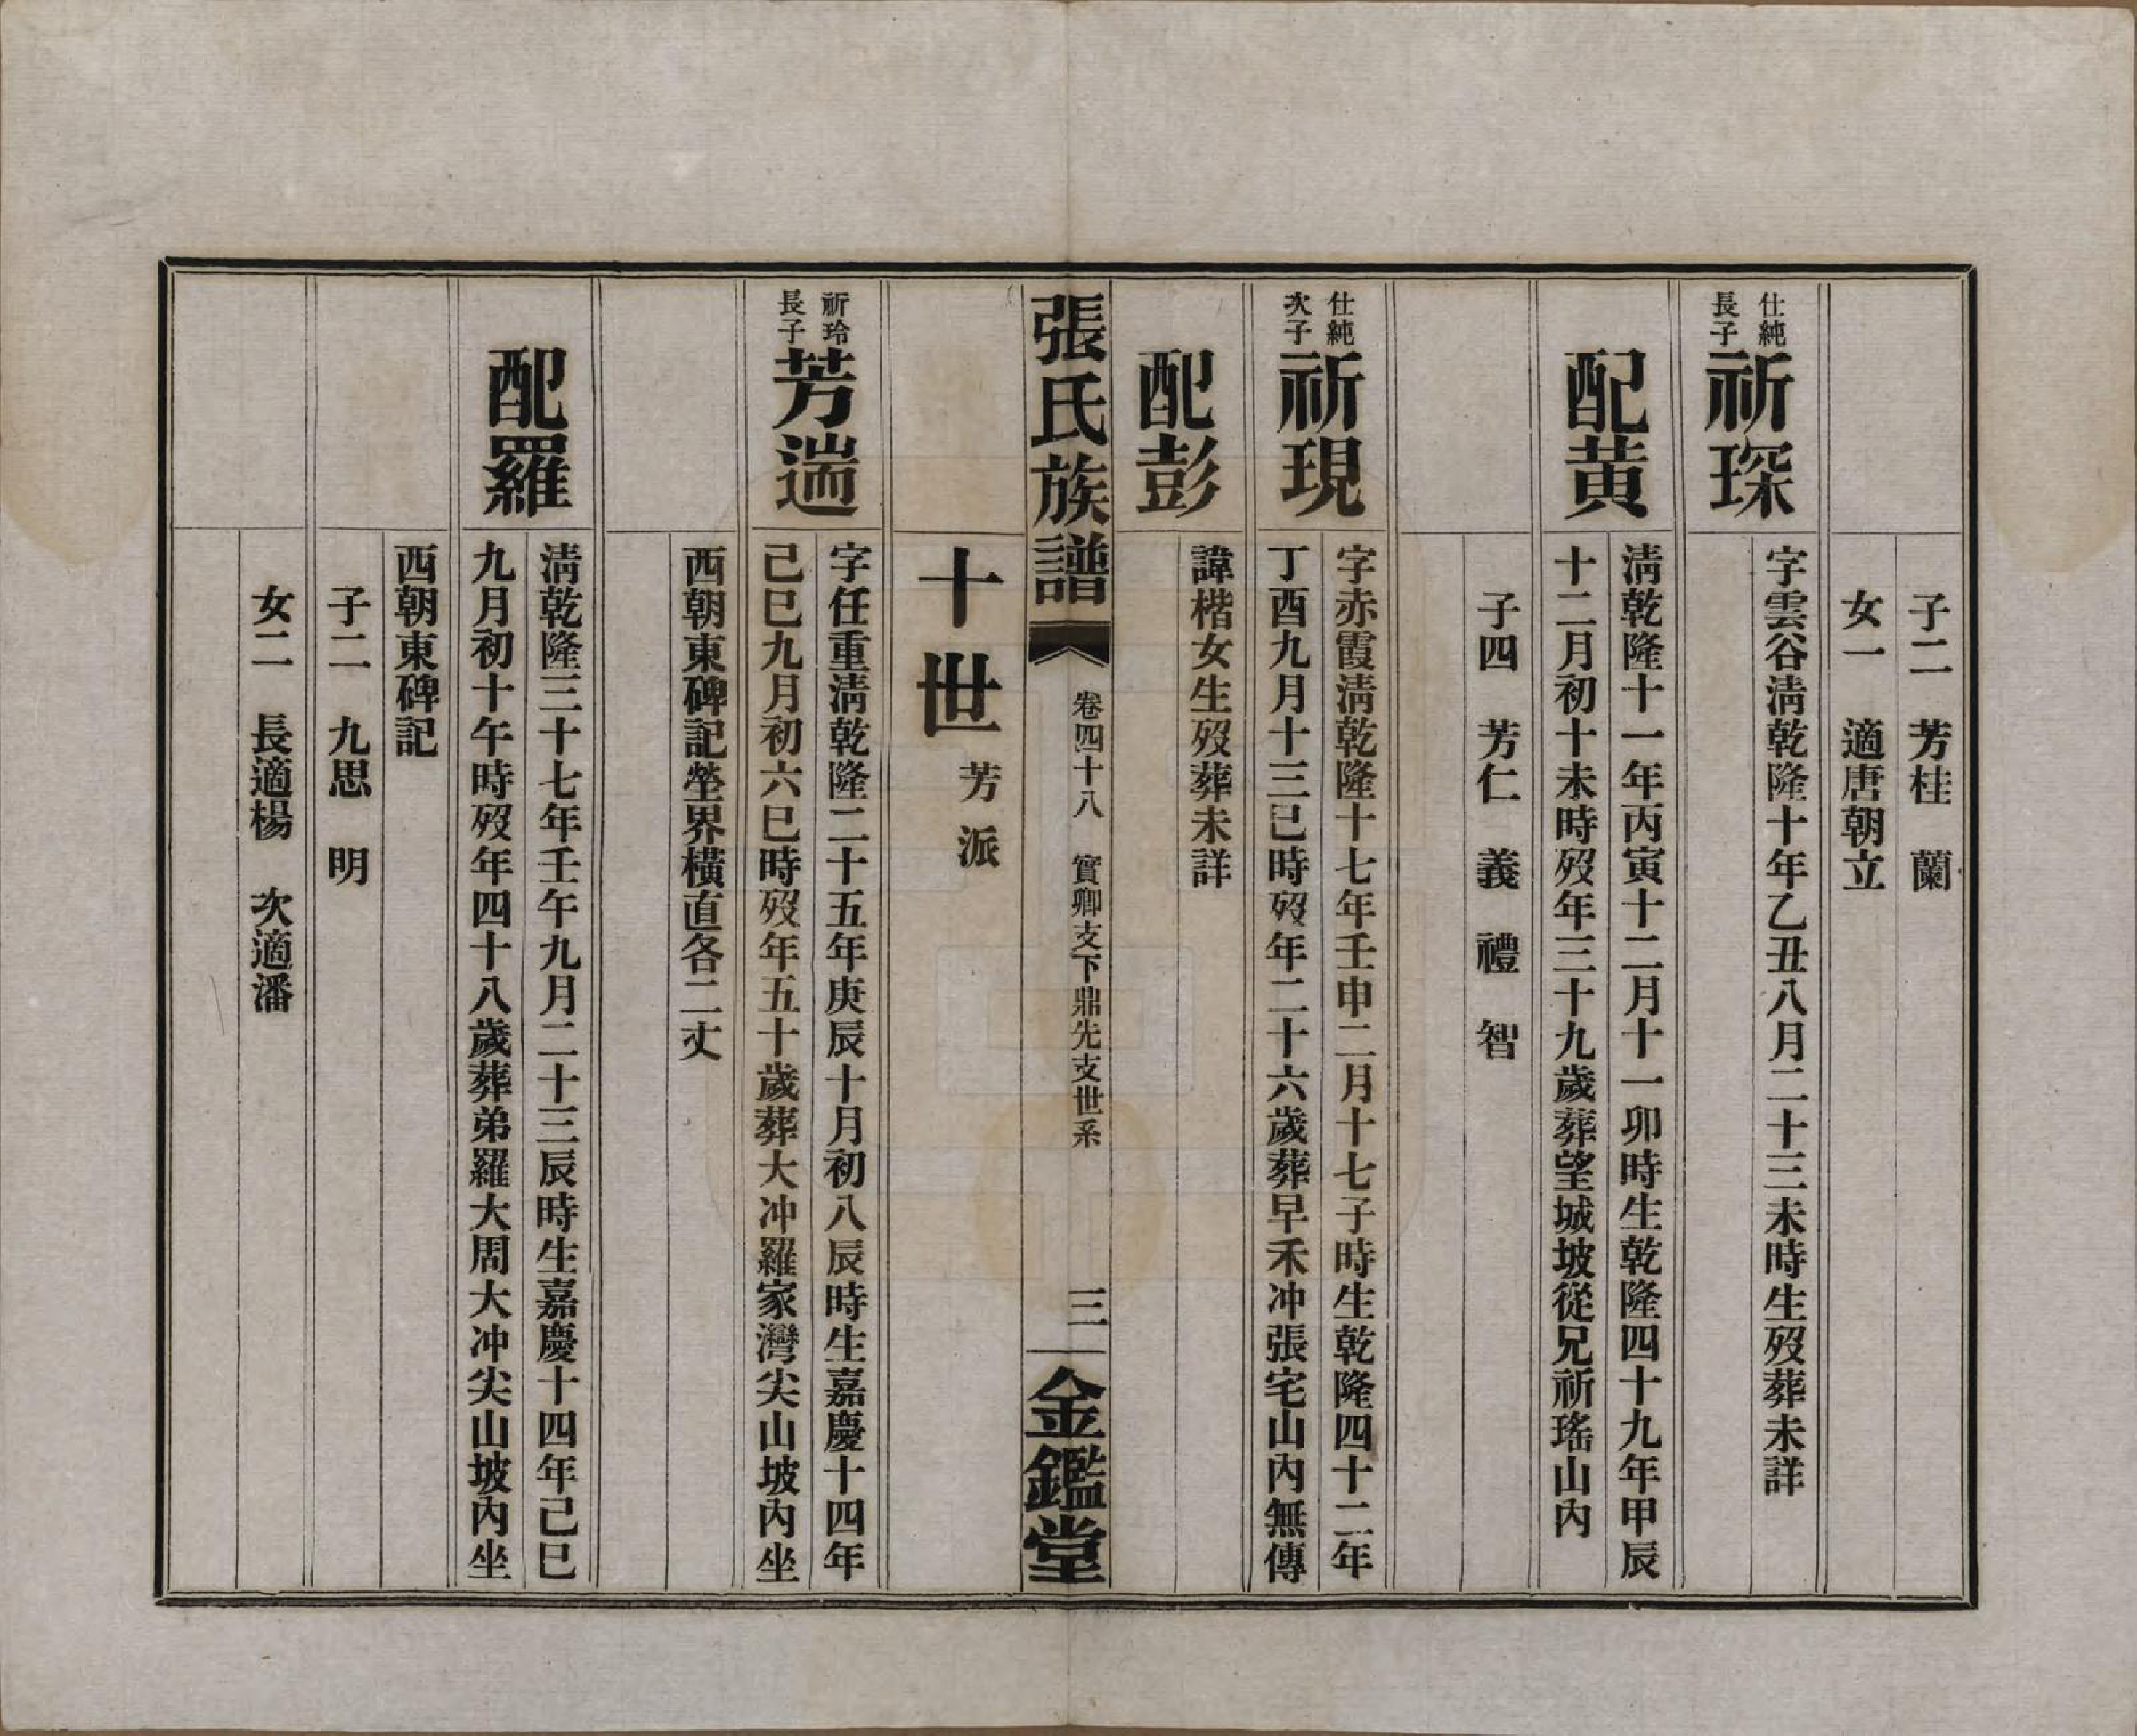 子二　芳桂　蘭
女一　適唐朝立
仕純
長子
祈琛
字雲谷淸乾隆十年乙丑八月二十三未時生歿葬未詳
配黃
淸乾隆十一年丙寅十二月十一卯時生乾隆四十九年甲辰
十二月初十未時歿年三十九歲葬望城坡從兄祈瑤山內
子四　芳仁　義　禮　智
仕純
次子
祈現
字赤霞淸乾隆十七年壬申二月十七子時生乾隆四十二年
丁酉九月十三巳時歿年二十六歲葬早禾冲張宅山內無傳
配彭
諱楷女生歿葬未詳
張氏族譜
卷四十八　實卿支下鼎先支世系
三
金鑑堂
十世
芳派
祈玲
長子
芳遄
字任重淸乾隆二十五年庚辰十月初八辰時生嘉慶十四年
己巳九月初六巳時歿年五十歲葬大冲羅家灣尖山坡內坐
西朝東碑記塋界橫直各二丈
配羅
淸乾隆三十七年壬午九月二十三辰時生嘉慶十四年己巳
九月初十午時歿年四十八歲葬弟羅大周大冲尖山坡內坐
西朝東碑記
子二　九思　明
女二　長適楊　次適潘